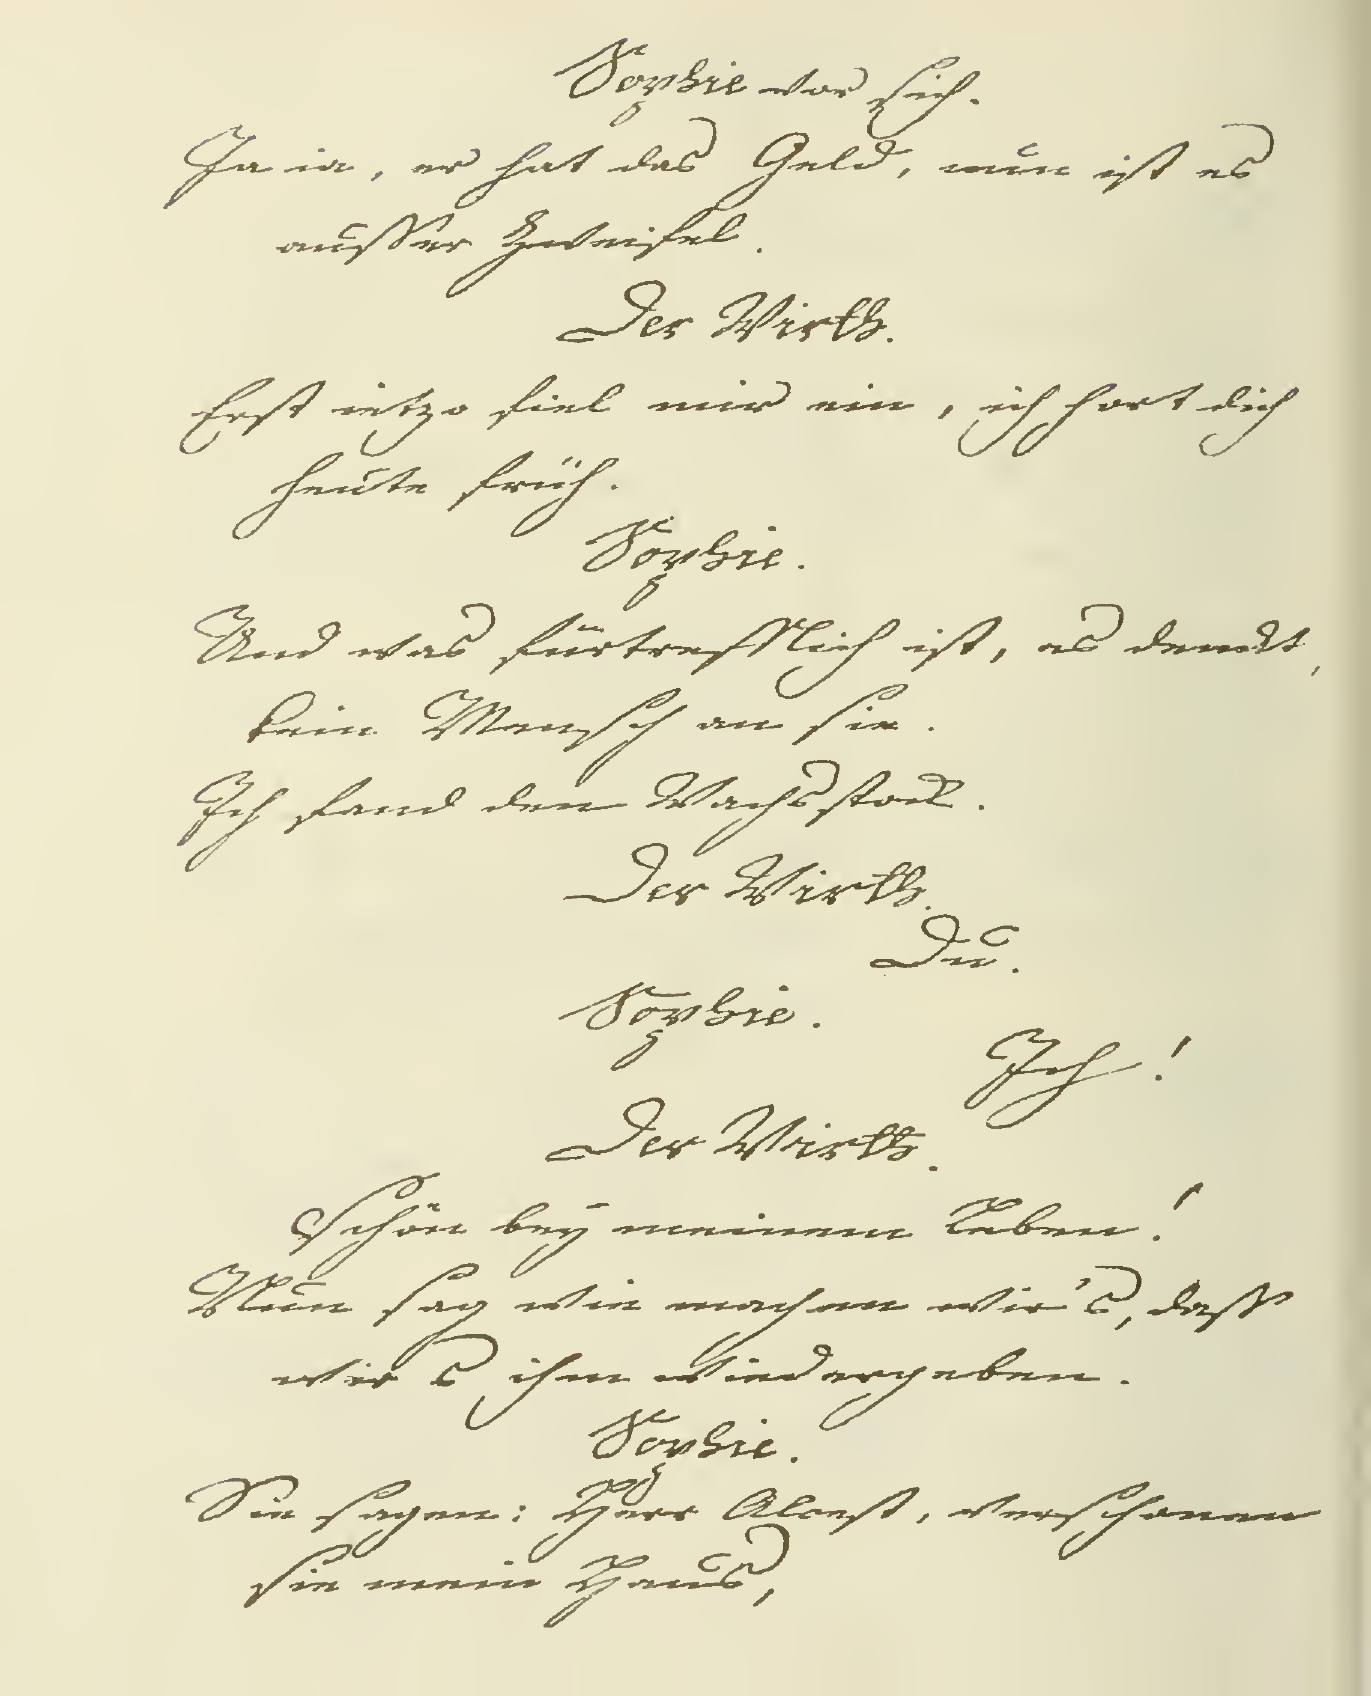 Sophie vor sich.
Ja ia, er hat das Geld, nun ist es
ausser Zweifel.
Der Wirth.
Erst ietzo fiel mir ein, ich hort dich
heute früh.
Sophie.
Und was fürtrefflich ist, es denckt,
kein Mensch an sie.
Ich fand den Wachsstock.
Der Wirth.
Du.
Sophie.
Ich!
Der Wirth.
Schön bey meinem Leben!
Nun sag wie machen wir's, dass
wir s ihm wiedergeben.
Sophie.
Sie sagen: Herr Alcest, verschonen
sie mein Haus,